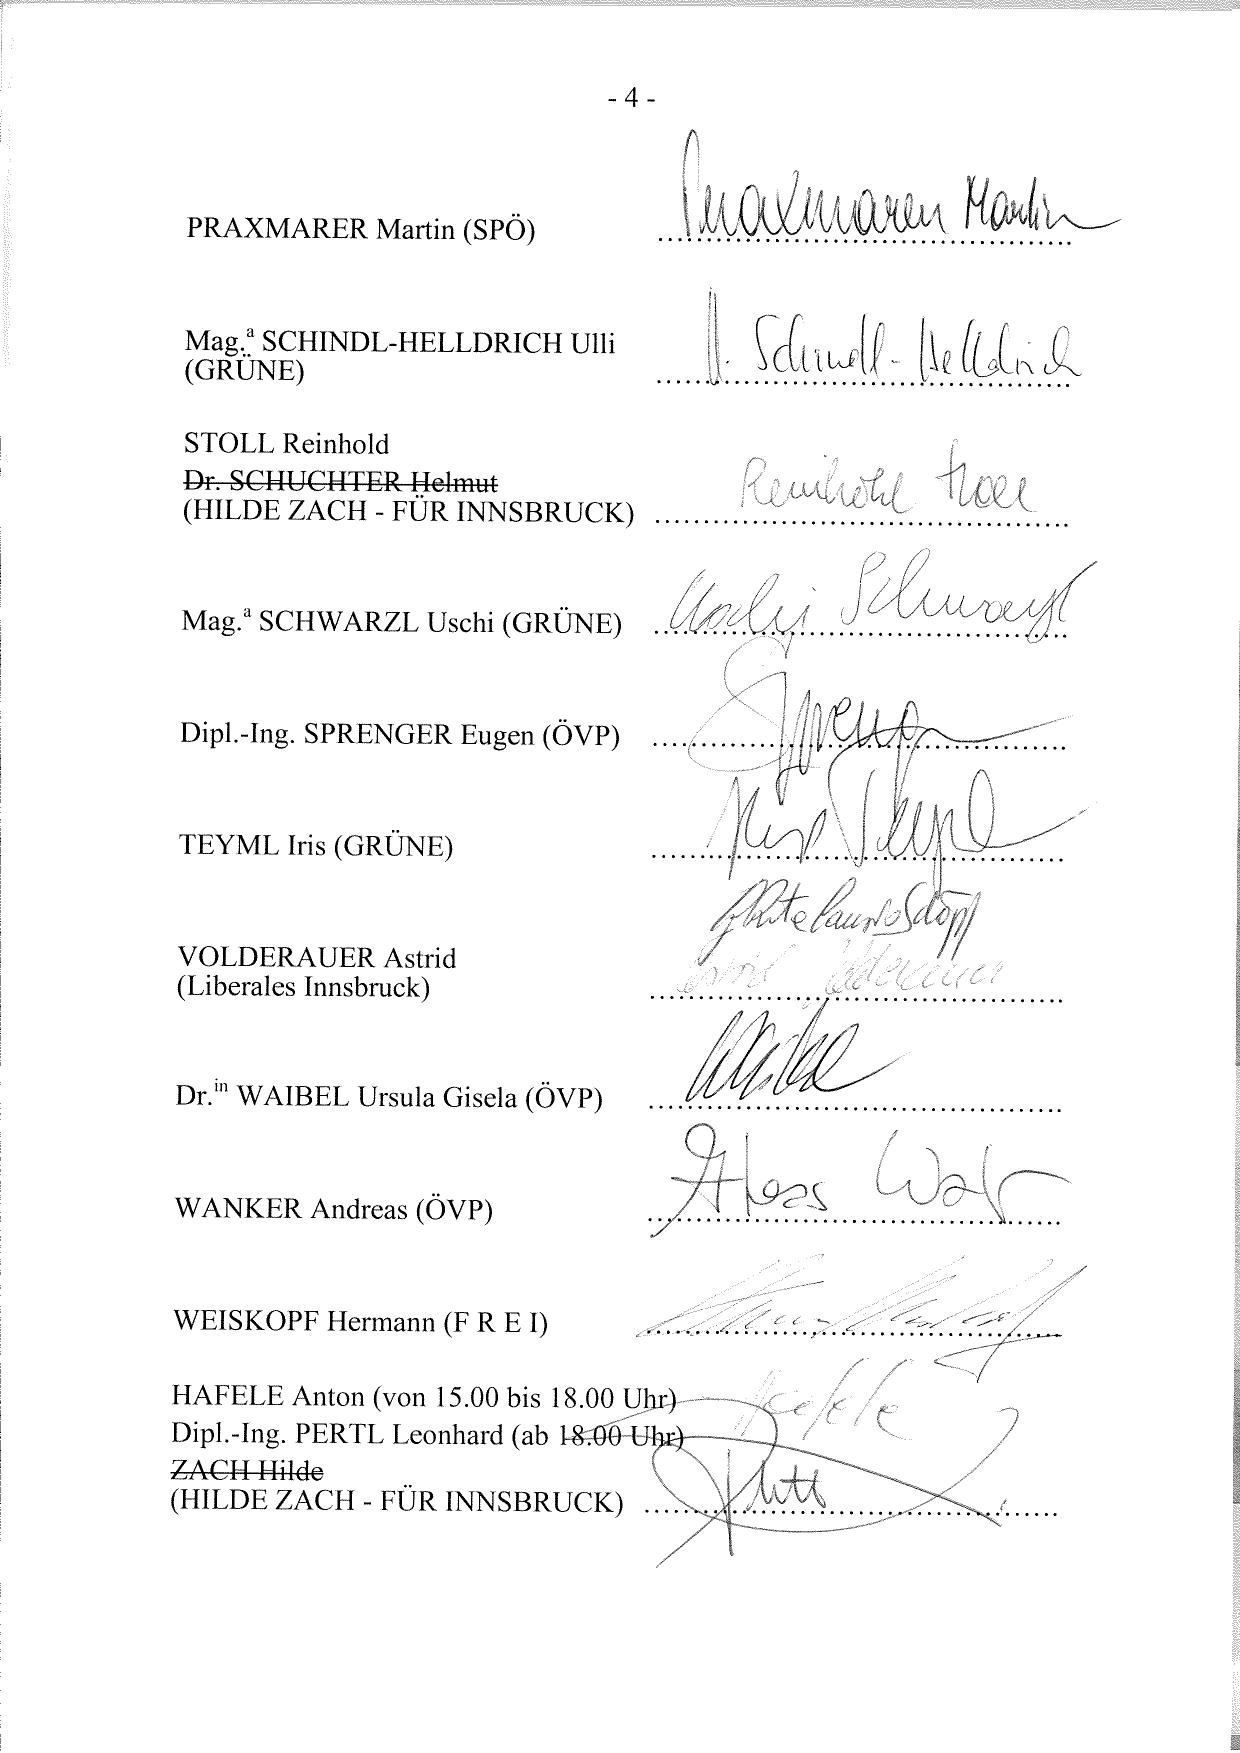 - 4 -
PRAXMARER Martin (SPÖ) Praxmarer Martin
Mag.ª SCHINDL-HELLDRICH Ulli U. Schindl-Helldrich
(GRÜNE)
STOLL Reinhold
Dr. SCHUCHTER Helmut Reinhold Stoll
(HILDE ZACH - FÜR INNSBRUCK)
Mag.ª SCHWARZL Uschi (GRÜNE) Uschi Schwarzl
Dipl.-Ing. SPRENGER Eugen (ÖVP)
TEYML Iris (GRÜNE) Iris Teyml
VOLDERAUER Astrid
(Liberales Innsbruck) Astrid Volderauer
Dr.in WAIBEL Ursula Gisela (ÖVP) Waibel
WANKER Andreas (ÖVP)
WEISKOPF Hermann (F R E I)
HAFELE Anton (von 15.00 bis 18.00 Uhr) Hafele
Dipl.-Ing. PERTL Leonhard (ab 18.00 Uhr)
ZACH Hilde
(HILDE ZACH - FÜR INNSBRUCK)